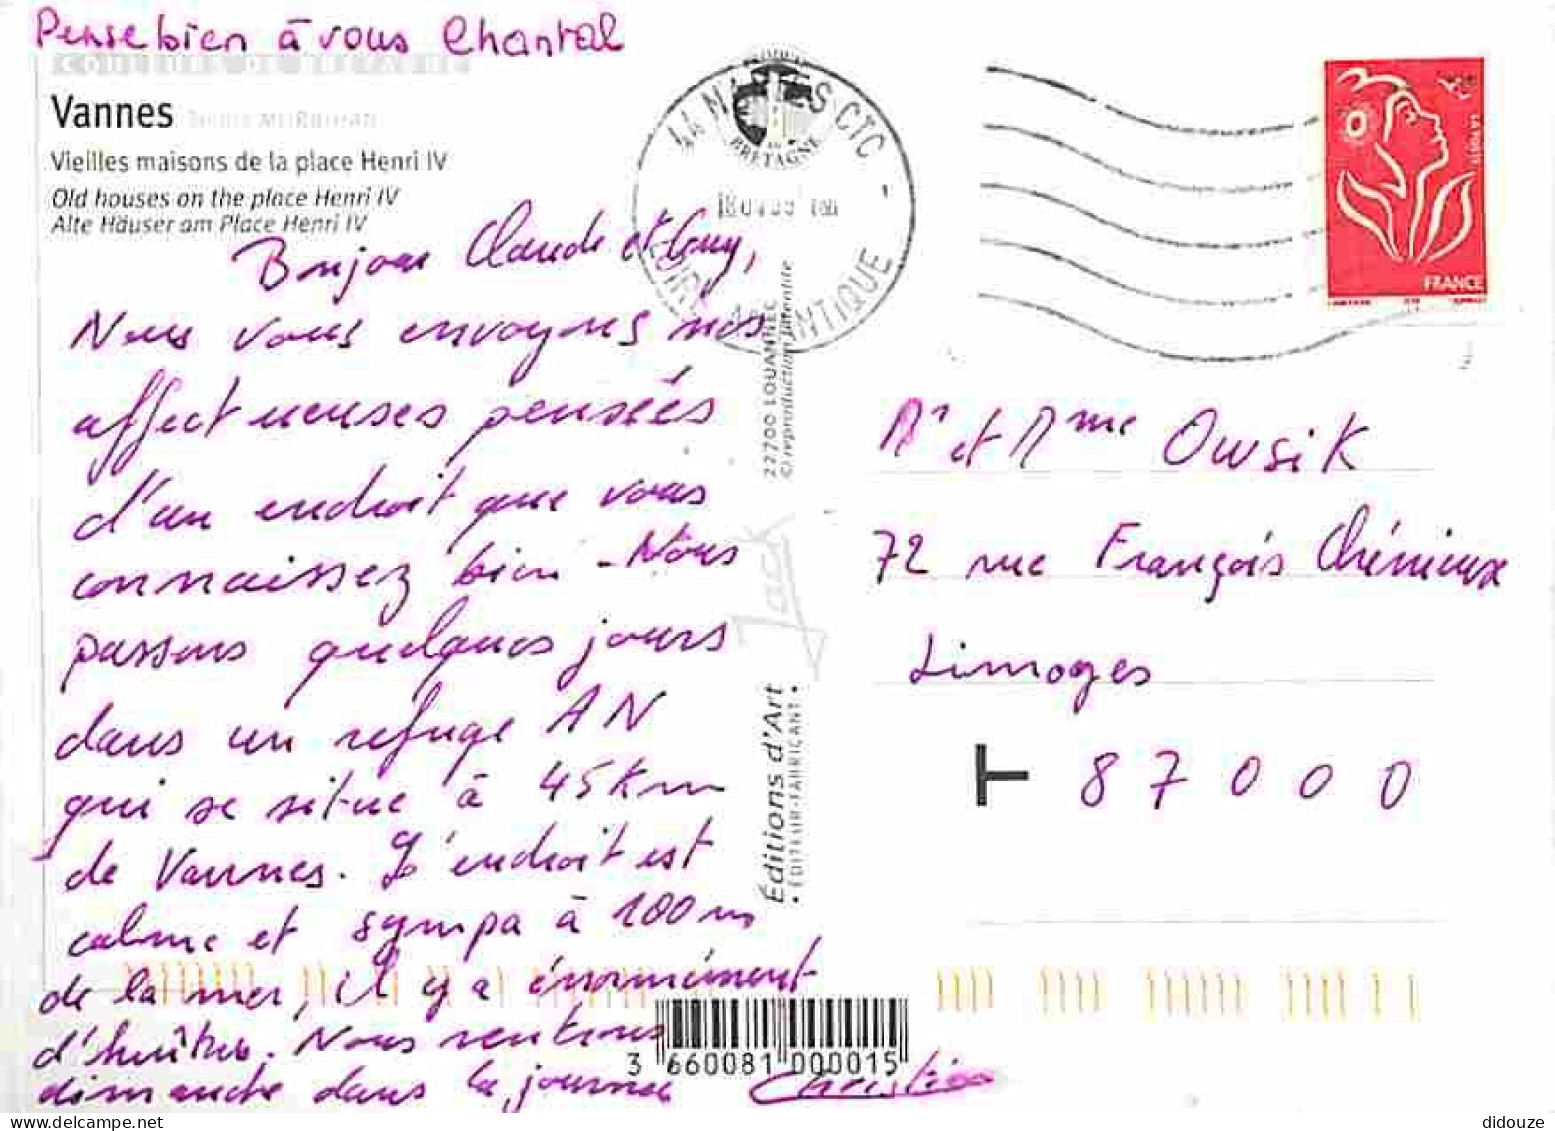 Pense bien à vous Chantal
COULEURS DE BRETAGNE
Vannes MORBIHAN
Vieilles maisons de la place Henri IV
Old houses on the place Henri IV
Alte Häuser am Place Henri IV
Bonjour Claude et Guy,
Nous vous envoyons nos
affectueuses pensées
d'un endroit que vous
connaissez bien - Nous
passons quelques jours
dans un refuge AN
qui se situe à 45 km
de Vannes. L'endroit est
calme et sympa à 100 m
de la mer, il y a énormément
d'huîtres. Nous rentrons
dimanche dans la journée
Christian
44 NANTES CTC -
LOIRE ATLANTIQUE
BRETAGNE
LA POSTE
FRANCE
22700 LOUANNEC
© reproduction interdite
Jack
Éditions d'Art
• ÉDITEUR-FABRICANT •
Mr et Mme Owsik
72 rue François Chénieux
Limoges
87000
3 660081 000015
didouze